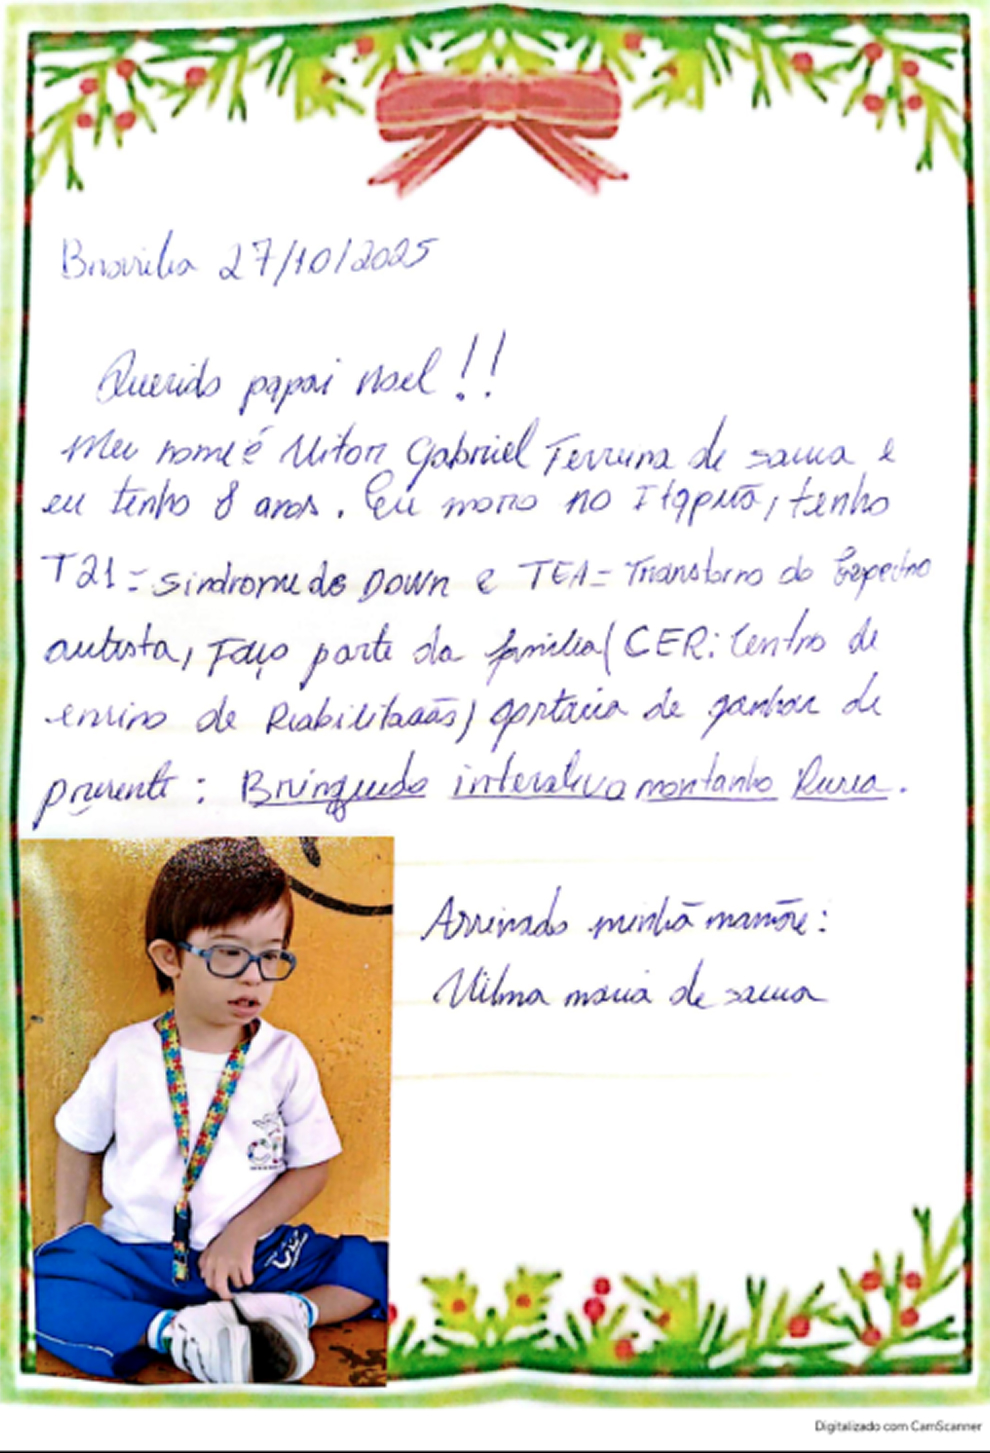 Brasília 27/10/2025
Querido papai Noel!!
Meu nome é Vitor Gabriel Ferreira de sousa e
eu tenho 8 anos. Eu moro no Itapuã, tenho
T21= Sindrome de DOWN e TEA= Transtorno do Espectro
autista, Faço parte da família (CER: Centro de
ensino de Reabilitação) gostaria de ganhar de
presente: Brinquedo interativo montanha Russa.
Assinado minhã mamãe:
Vilma maria de sousa
Digitalizado com CamScanner